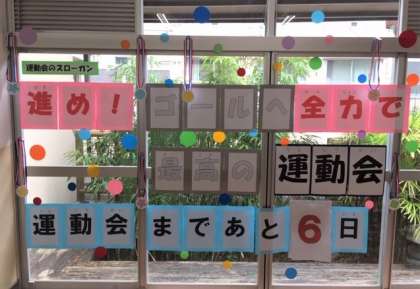 運動会のスローガン
進め！ゴールへ全力で
最高の運動会
運動会まであと6日